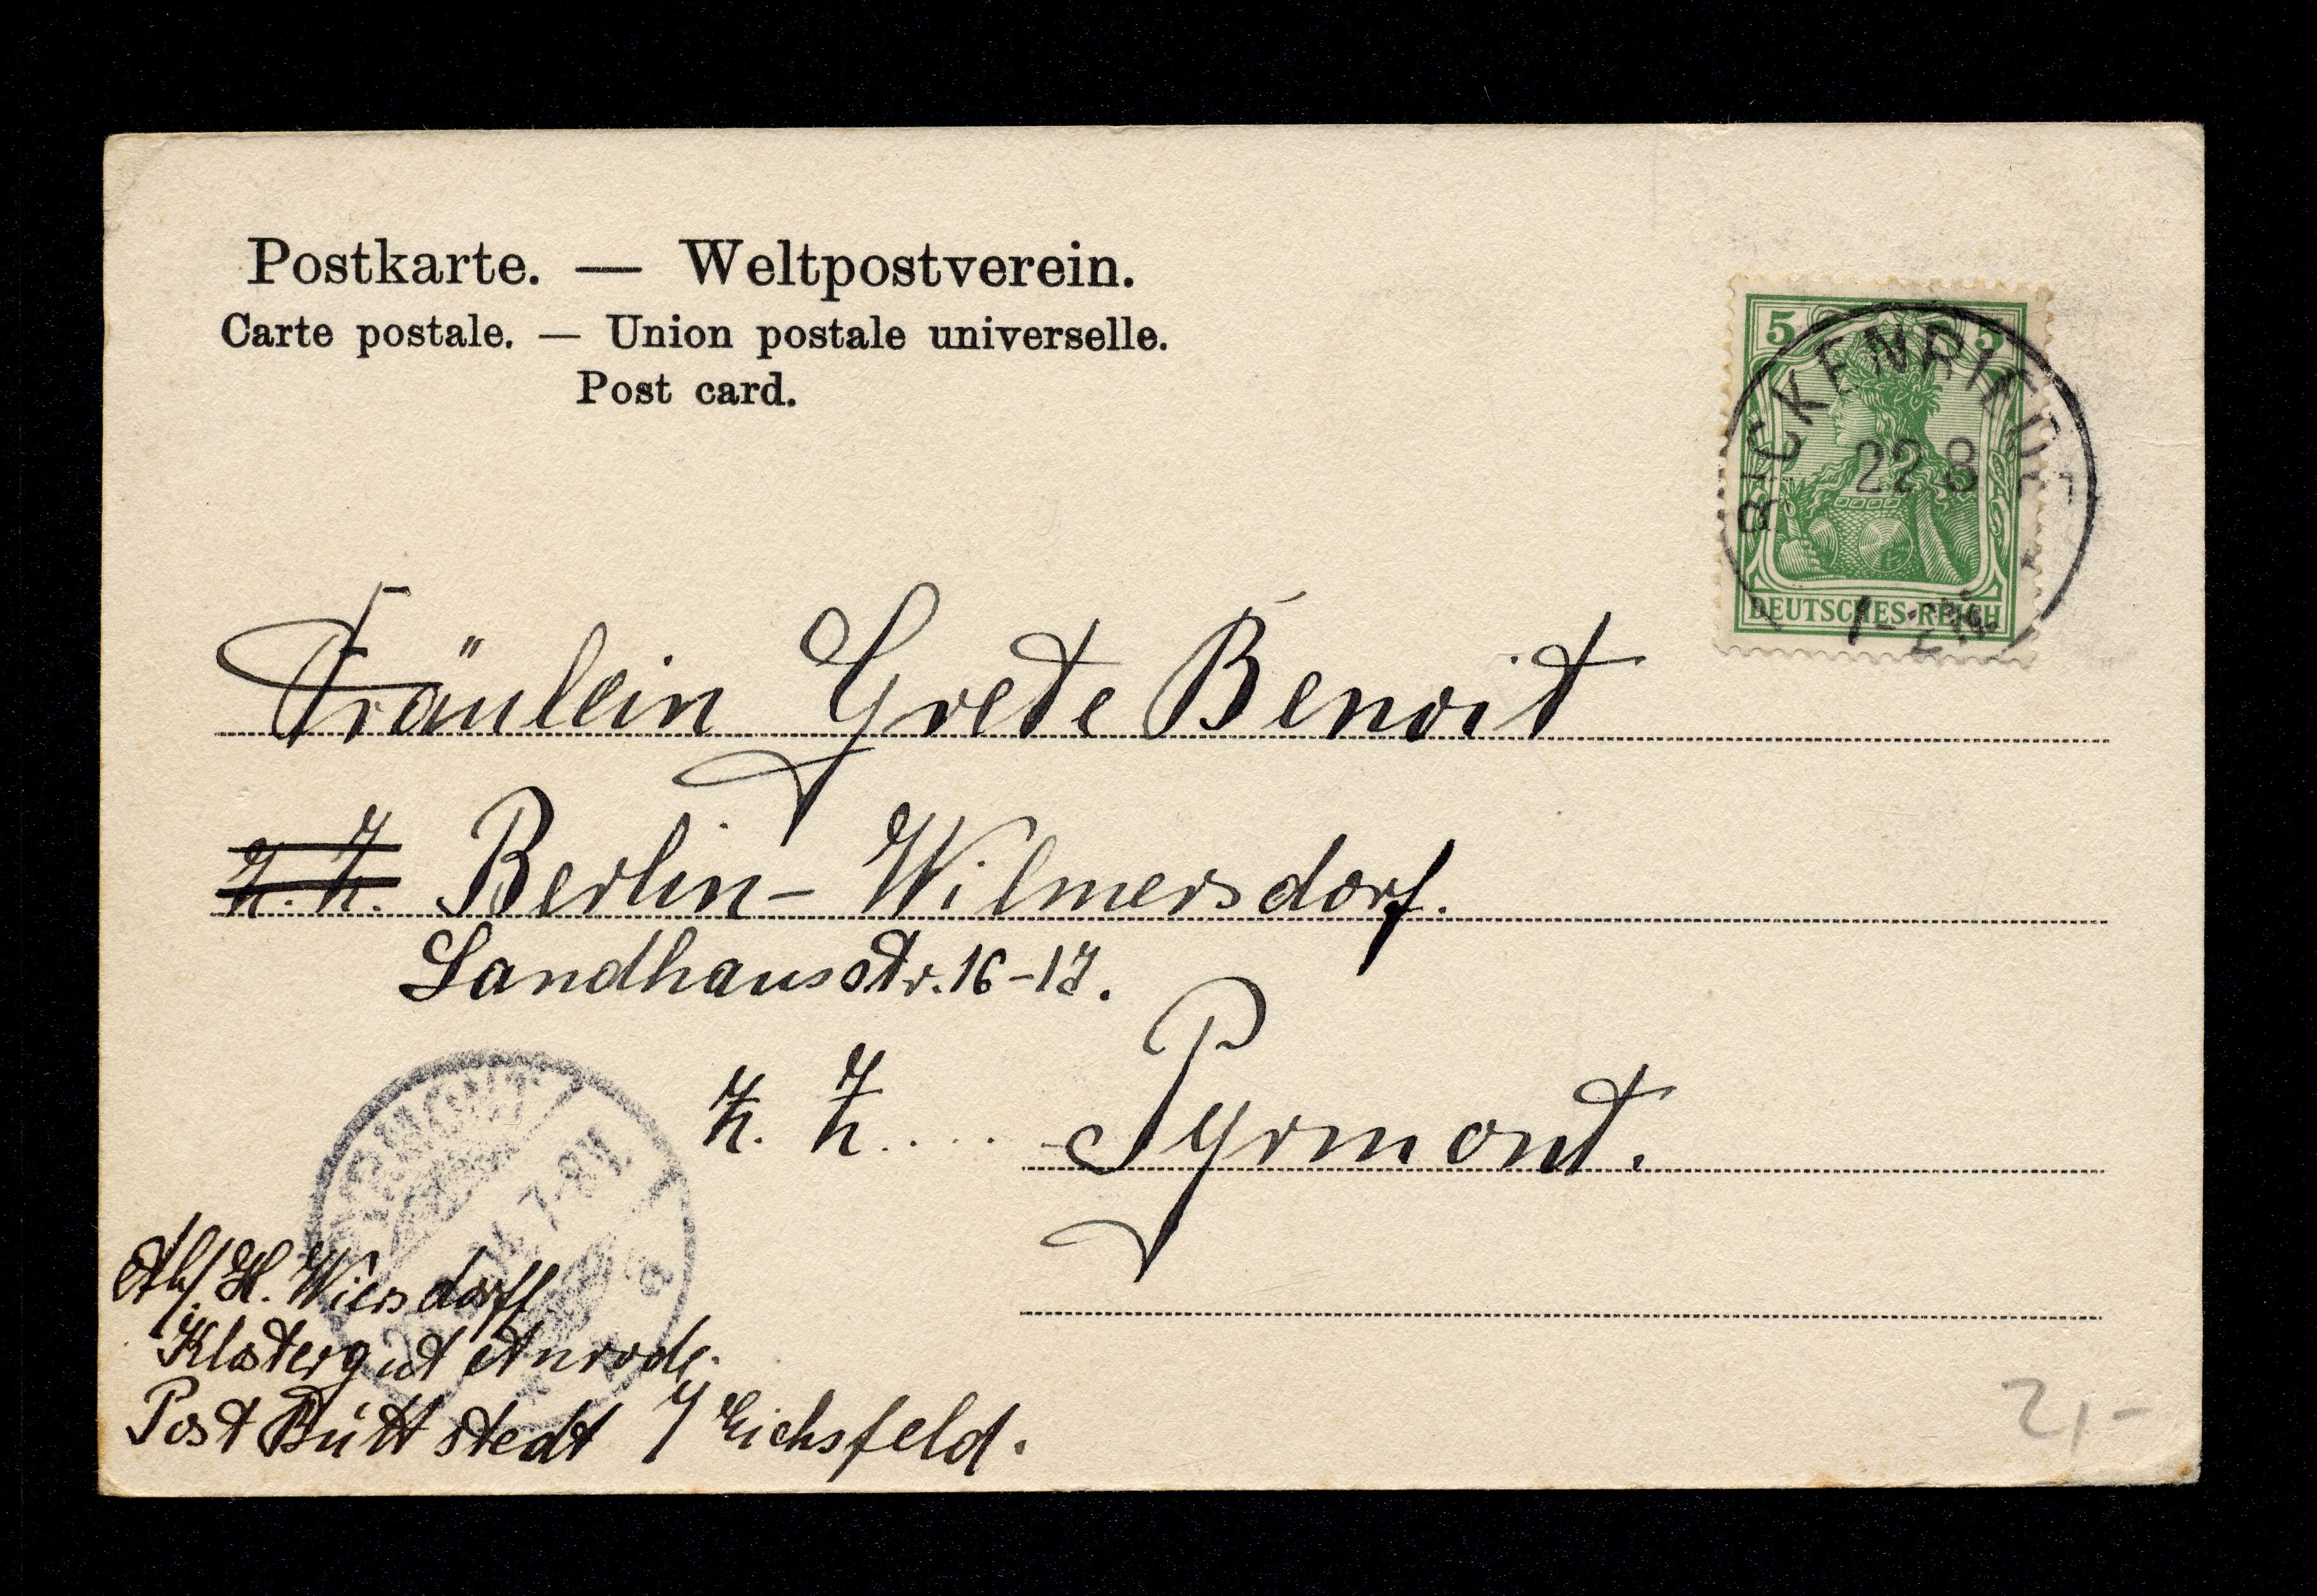 Postkarte. — Weltpostverein.
Carte postale. — Union postale universelle.
Post card.
5 5
BICKENRIEDE
22 8
1-2N
DEUTSCHES REICH
Fräulein Grete Benoit
z. Z. Berlin-Wilmersdorf.
Landhausstr. 16-17.
z. Z. ... Pyrmont.
PYRMONT
7-8V.
a
H. Wiersdorff
Klostergut Anrode.
Post Büttstedt / Eichsfeld.
2,-